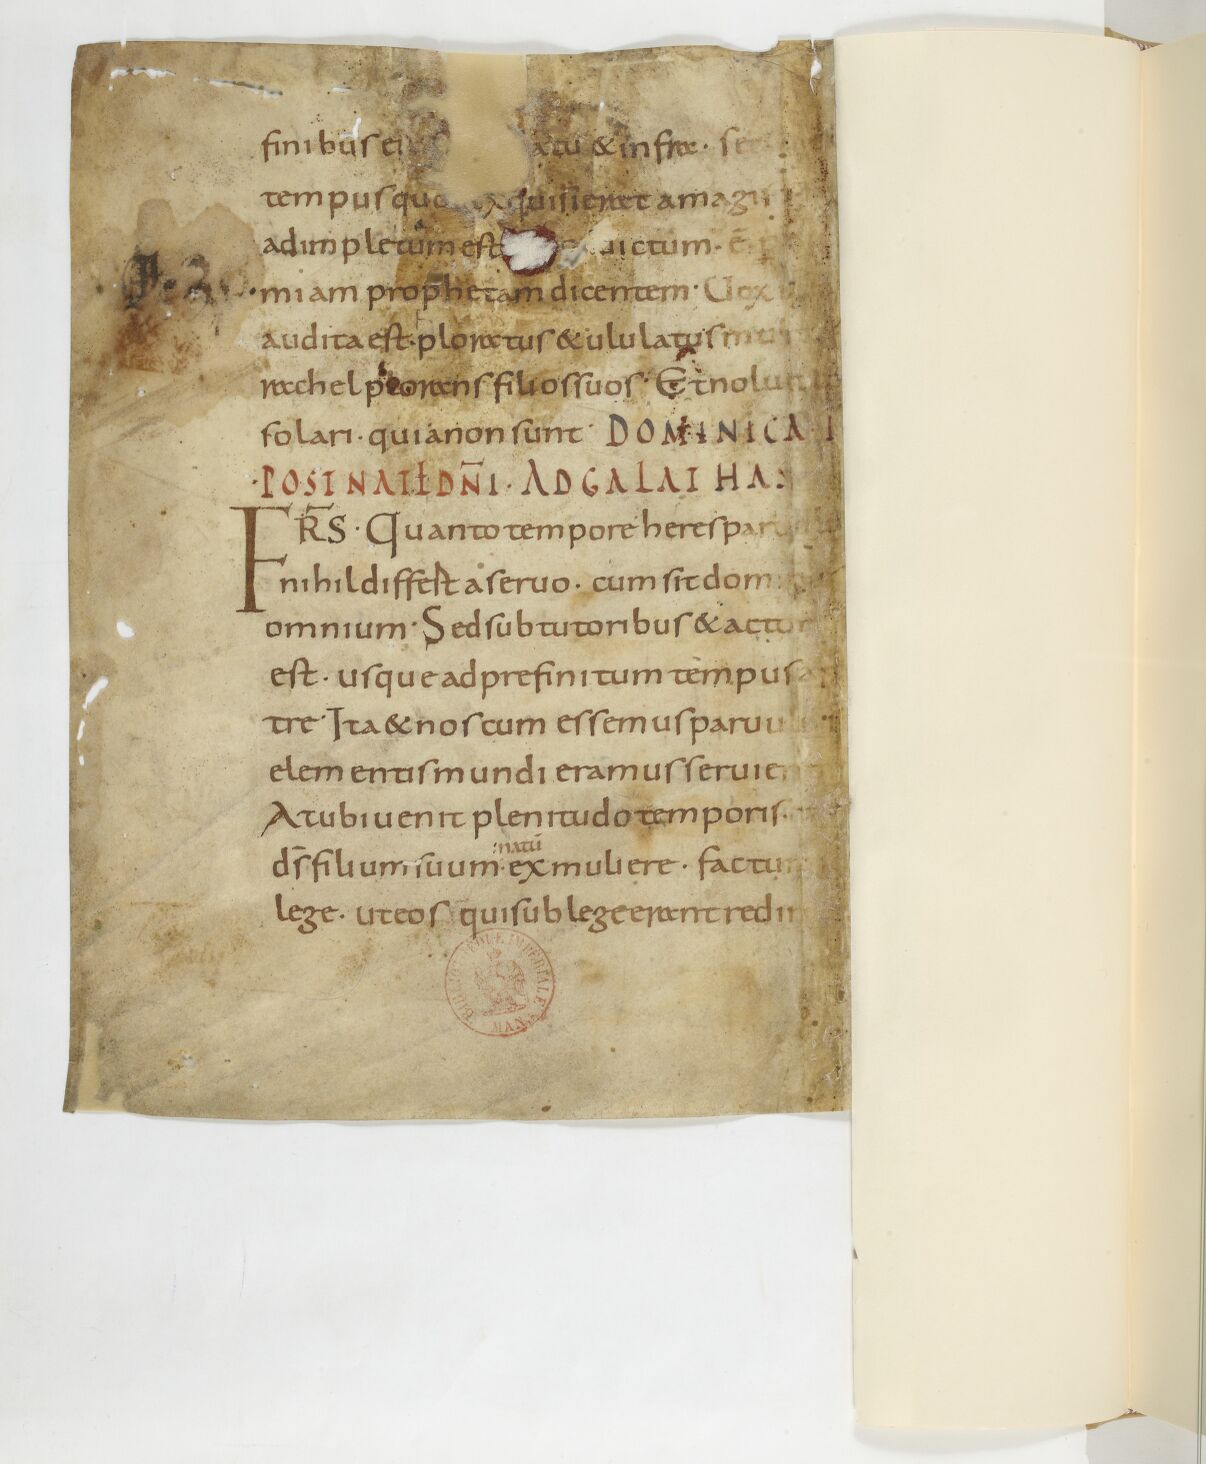 finibus ei atu & infra · sec
tempus quo exquisierat a magis
adimpletum est dictum · ē p
miam prophetam dicentem · Vox
audita est · ploratus & ululatus mul
rachel plorans filios suos · Et nolu
solari · quia non sunt · DOMINICA I
POST NATĪ DN̄I · AD GALATHAS
FR̄S · Quanto tempore heres par
nihil differt a seruo · cum sit dom
omnium · Sed sub tutoribus & actor
est · usque ad prefinitum tempus a
tre · Ita & nos cum essemus paruu
elementis mundi eramus seruien
At ubi uenit plenitudo temporis ·
natū
ds̄ filium suum · ex muliere · factu
lege · ut eos qui sub lege erant redi
BIBLIOTHEQUE IMPERIALE
MAN